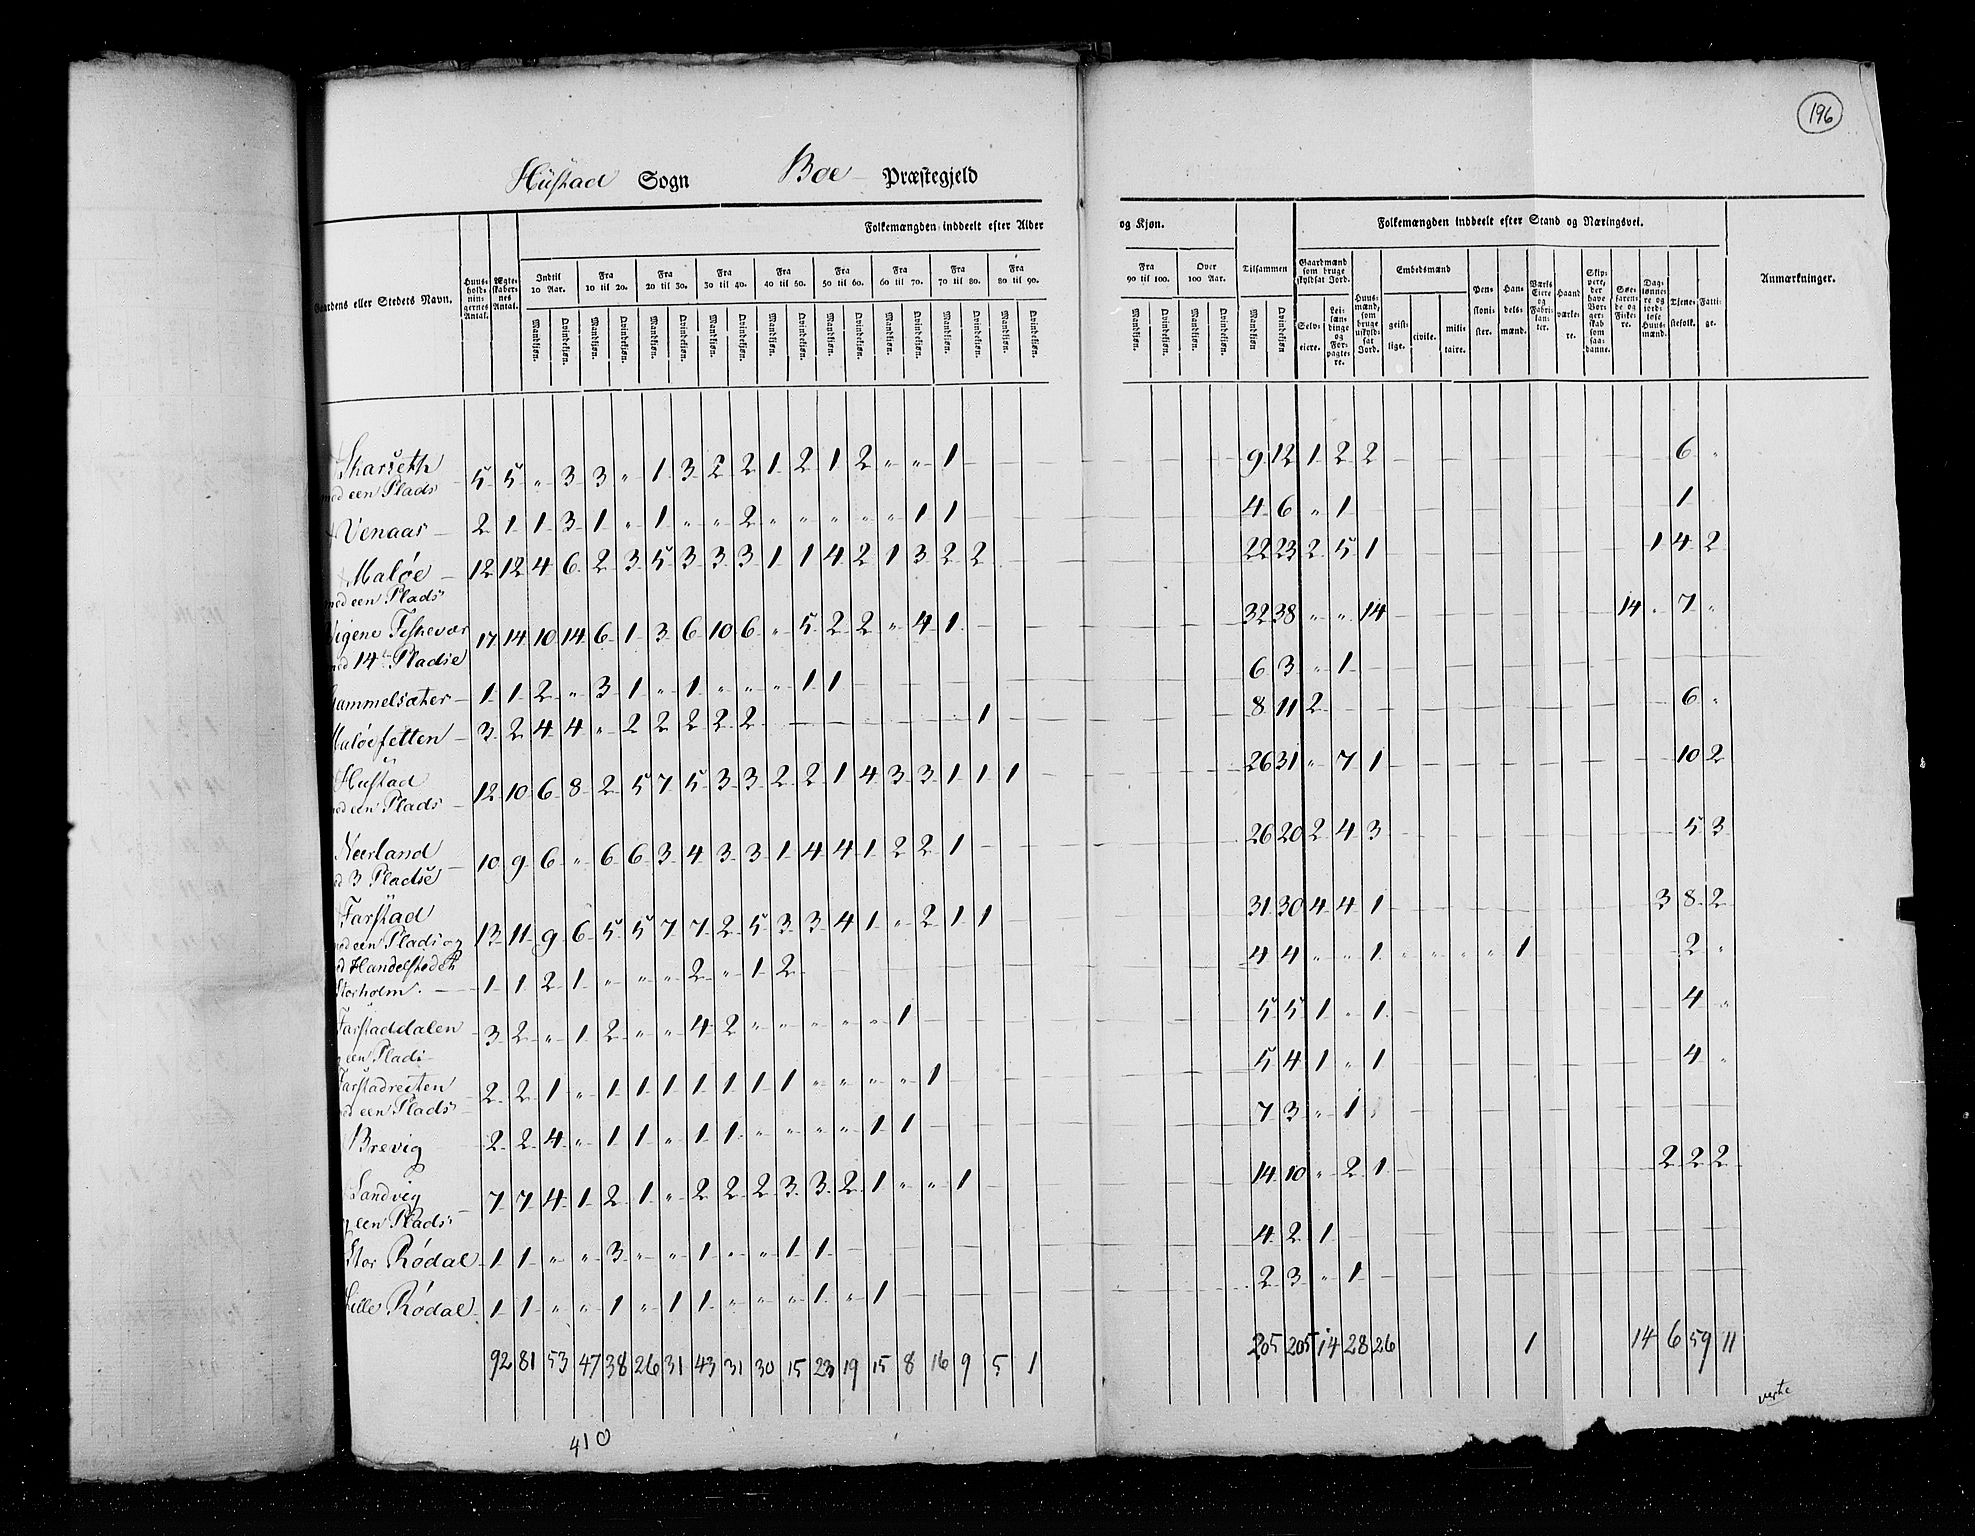 196
Hüstad Sogn Boe Præstegjeld
Folkemængden inddeelt efter Alder og Kjøn. Folkemængden inddeelt efter Stand og Næringsvei.
Gaardens eller Stedets Navn. Huus-hold-nin-gernes Antal. Ægte-skaber-nes Antal. Indtil 10 Aar. Fra 10 til 20. Fra 20 til 30. Fra 30 til 40. Fra 40 til 50. Fra 50 til 60. Fra 60 til 70. Fra 70 til 80. Fra 80 til 90. Fra 90 til 100. Over 100 Aar. Tilsammen Gaardmænd som bruge skyldsat Jord. Huus-mænd, som bruge uskyld-sat Jord. Embedsmænd Pen-sioni-ster. Han-dels-mænd. Værks Eiere og Fabri-kan-ter. Haand værke-re. Skip-pere, der have Bor-ger-skab som saa-danne. Søe-faren-de og Fiske-re. Dag-lønne-re og jord-løse Huus-mænd. Tjene-stefolk. Fatti-ge. Anmærkninger.
Mandkjøn. Qvindekjøn. Mandkjøn. Qvindekjøn. Mandkjøn. Qvindekjøn. Mandkjøn. Qvindekjøn. Mandkjøn. Qvindekjøn. Mandkjøn. Qvindekjøn. Mandkjøn. Qvindekjøn. Mandkjøn. Qvindekjøn. Mandkjøn. Qvindekjøn. Mandkjøn. Qvindekjøn. Mandkjøn. Qvindekjøn. Mandkjøn Qvindekjøn Selv-eiere. Lei-læn-dinge og For-pagte-re. geist-lige. civile. mili-taire.
Skarseth
med een Plads 5 5 " 3 3 " 1 3 2 2 1 2 1 2 " " 1 9 12 1 2 2 6 "
Venaas 2 1 1 3 1 " 1 " " 2 " " " " " 1 1 4 6 " 1 1
Maløe 12 12 4 6 2 3 5 3 3 3 1 1 4 2 1 3 2 2 22 23 2 5 1 1 4 2
med een Plads
Vigene Fiskevær 17 14 10 14 6 1 3 6 10 6 " 5 2 2 " 4 1 32 38 " " 14 14 " 7 "
med 14 Pladse
Gammelsæter 1 1 2 " 3 1 " 1 " " " 1 1 6 3 " 1
Maløefetten 3 2 4 4 " 2 2 2 2 2 1 8 11 2 6 "
Hustad
med een Plads 12 10 6 8 2 5 7 5 3 3 2 2 1 4 3 3 1 1 1 26 31 " 7 1 10 2
Neerland
3 Pladse 10 9 6 " 6 6 3 4 3 3 1 4 4 1 2 2 1 26 20 2 4 3 5 3
Farstad
med een Plads og 13 11 9 6 5 5 7 7 2 5 3 3 4 1 " 2 1 1 31 30 4 4 1 3 8 2
Handelstedet
Storholm. 1 1 2 1 " " " 2 " 1 2 4 4 " " 1 " " " " 1 2 "
Farstaddalen
een Plads 3 2 " 1 2 " " 4 2 " " " " " 1 5 5 1 " 1 4 "
Farstadreiten
med een Plads 2 2 1 " 1 1 1 1 1 1 1 " " " " 1 5 4 1 " 1 4 "
Brevig 2 2 4 " 1 1 " 1 1 " " " " 1 1 7 3 " 1
Sandvig
een Plads 7 7 4 1 2 1 " 2 2 2 3 3 2 1 " " 1 14 10 " 2 1 2 2 2
Stor Rødal 1 1 " " 3 " " 1 " " 1 1 4 2 1
Lille Rødal 1 1 " " 1 " 1 1 " " " 1 " 1 2 3 " 1
92 81 53 47 38 26 31 43 31 30 15 23 19 15 8 16 9 5 1 205 205 14 28 26 1 14 6 59 11
verte
410